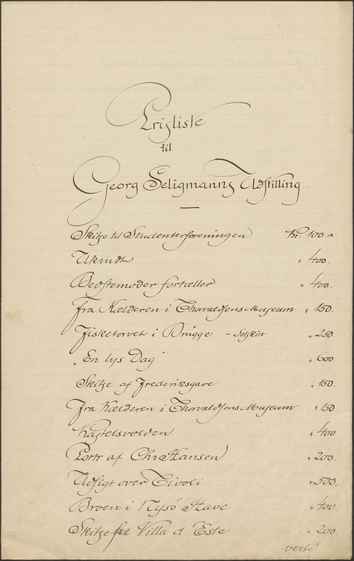 Prisliste
til
Georg Seligmanns Udstilling
Skitze til Studenterforeningen Kr. 100 „
Ukrudt „ 400.
Bedstemoder fortæller „ 400.
Fra Kælderen i Thorvaldsens Museum „ 150.
Fisketorvet i Brügge - „ 250
„En lys Dag" „ 600
Skitze af Frederiksgave „ 150.
Fra Kælderen i Thorvaldsens Museum „ 150
Kastelsvolden „ 400
Portr. af Chr. Hansen „ 200.
Udsigt over Tivoli „ 500.
Broen i Nysø Have „ 400.
Skitze fra Villa d'Este „ 200
verso